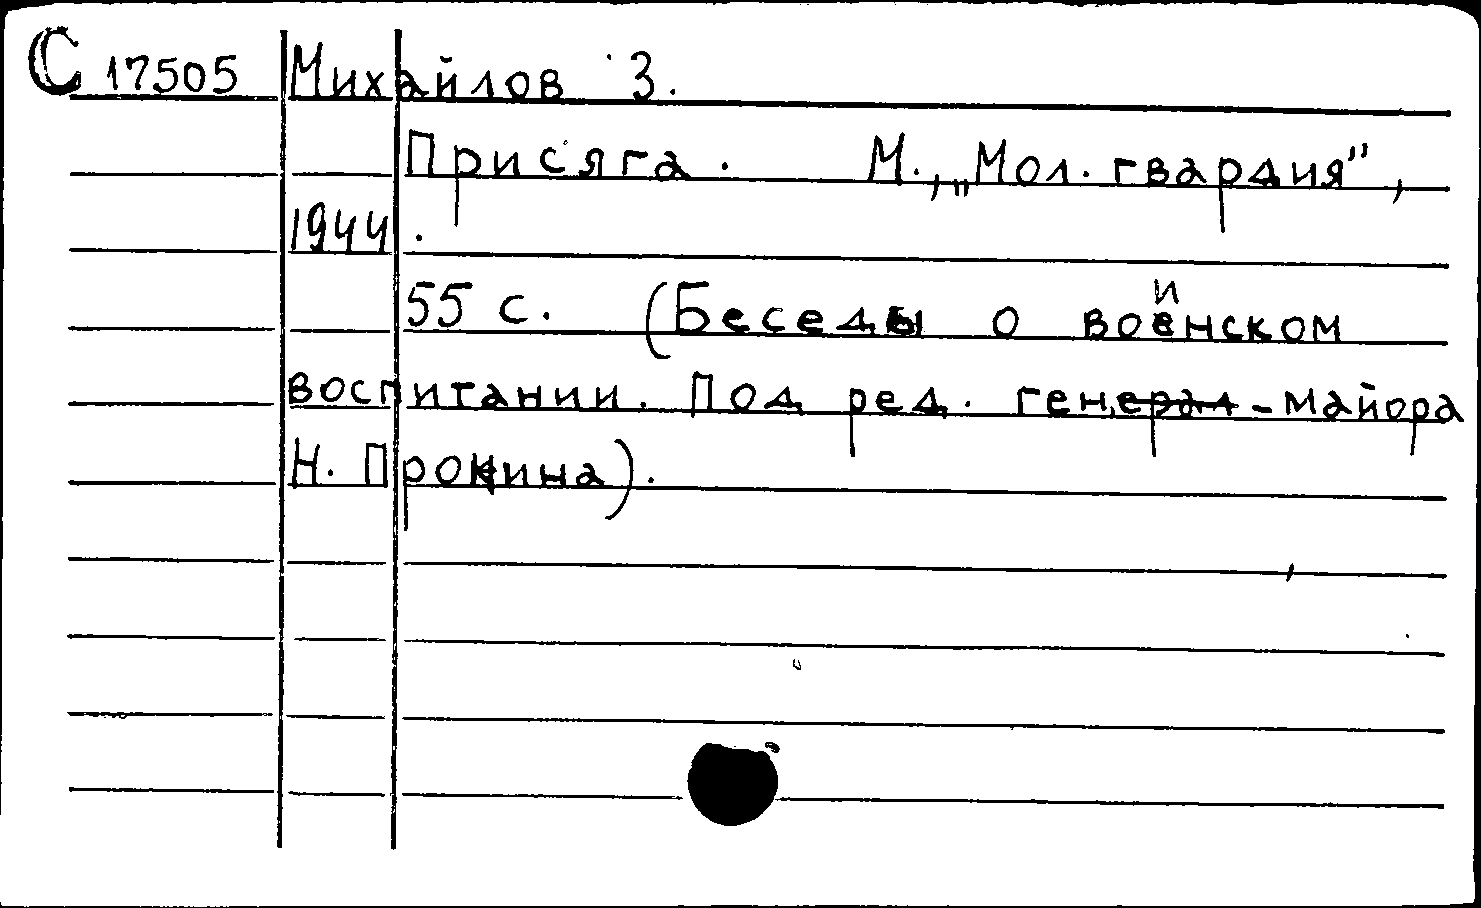 С 17505 Михайлов З.
Присяга. М., „Мол. гвардия",
1944.
55 с. (Беседы о воинском
воспитании. Под ред. ген.-майора
Н. Пронина).